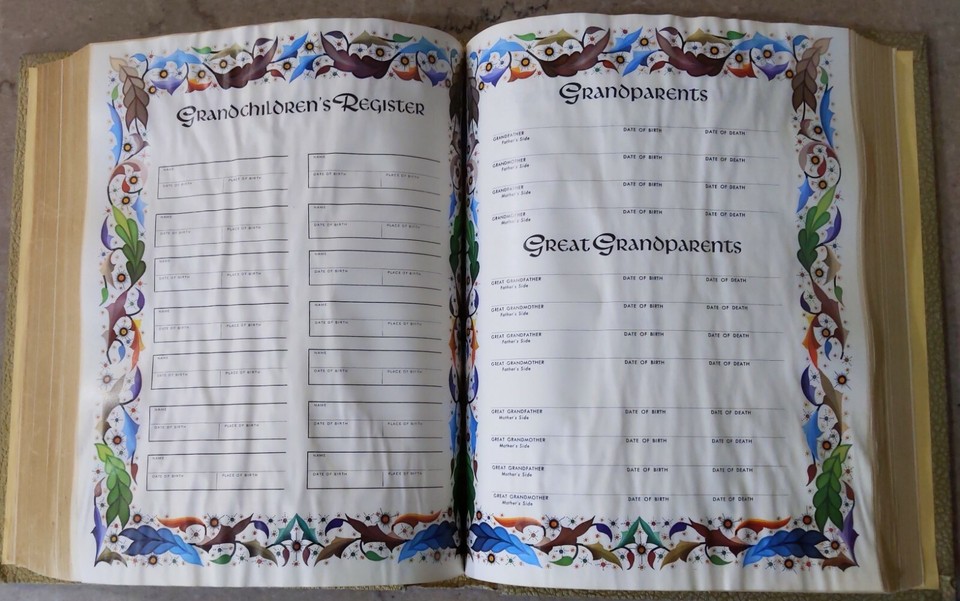 Grandchildren's Register
NAME
DATE OF BIRTH PLACE OF BIRTH
NAME
DATE OF BIRTH PLACE OF BIRTH
NAME
DATE OF BIRTH PLACE OF BIRTH
NAME
DATE OF BIRTH PLACE OF BIRTH
NAME
DATE OF BIRTH PLACE OF BIRTH
NAME
DATE OF BIRTH PLACE OF BIRTH
NAME
DATE OF BIRTH PLACE OF BIRTH
NAME
DATE OF BIRTH PLACE OF BIRTH
NAME
DATE OF BIRTH PLACE OF BIRTH
NAME
DATE OF BIRTH PLACE OF BIRTH
NAME
DATE OF BIRTH PLACE OF BIRTH
NAME
DATE OF BIRTH PLACE OF BIRTH
NAME
DATE OF BIRTH PLACE OF BIRTH
NAME
DATE OF BIRTH PLACE OF BIRTH
Grandparents
GRANDFATHER DATE OF BIRTH DATE OF DEATH
Father's Side
GRANDMOTHER DATE OF BIRTH DATE OF DEATH
Father's Side
GRANDFATHER DATE OF BIRTH DATE OF DEATH
Mother's Side
GRANDMOTHER DATE OF BIRTH DATE OF DEATH
Mother's Side
Great Grandparents
GREAT GRANDFATHER DATE OF BIRTH DATE OF DEATH
Father's Side
GREAT GRANDMOTHER DATE OF BIRTH DATE OF DEATH
Father's Side
GREAT GRANDFATHER DATE OF BIRTH DATE OF DEATH
Father's Side
GREAT GRANDMOTHER DATE OF BIRTH DATE OF DEATH
Father's Side
GREAT GRANDFATHER DATE OF BIRTH DATE OF DEATH
Mother's Side
GREAT GRANDMOTHER DATE OF BIRTH DATE OF DEATH
Mother's Side
GREAT GRANDFATHER DATE OF BIRTH DATE OF DEATH
Mother's Side
GREAT GRANDMOTHER DATE OF BIRTH DATE OF DEATH
Mother's Side